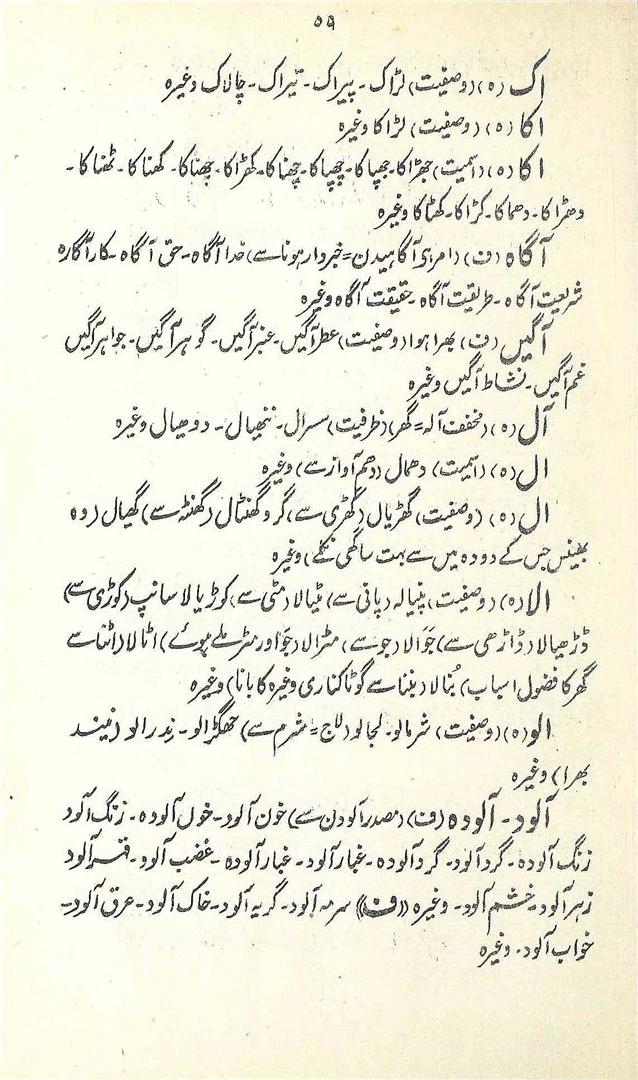 ۵۹
اک (ہ) (وصفیت) لڑاک۔ پیراک۔ تیراک۔ چالاک وغیرہ
اکا (ہ) (وصفیت) لڑاکا وغیرہ
اکا (ہ) (اسمیت) جھڑاکا۔ جھپاکا۔ چھپاکا۔ چھناکا۔ کھڑاکا۔ چھناکا۔ کھناکا۔ ٹھناکا۔
دھڑاکا۔ دھماکا۔ کڑاکا۔ کھٹاکا وغیرہ
آگاہ (ف) (امر از آگاہیدن = خبردار ہونا سے) خدا آگاہ۔ حق آگاہ۔ کار آگارہ
شریعت آگاہ۔ طریقت آگاہ۔ حقیقت آگاہ وغیرہ
آگیں (ف) بھرا ہوا (وصفیت) عطر آگیں۔ عنبر آگیں۔ گوہر آگیں۔ جواہر آگیں
غم آگیں۔ نشاط آگیں وغیرہ
آل (ہ) (مخفف آلہ = گھر) (ظرفیت) سسرال۔ ننھیال۔ دودھیال وغیرہ
ال (ہ) (اسمیت) دھمال (دھم آواز سے) وغیرہ
ال (ہ) (وصفیت) گھڑیال (گھڑی سے) گر و گھنٹال (گھنٹہ سے) گھیال (وہ
بھینس جس کے دودہ میں سے بہت سا گھی نکلے) وغیرہ
الا (ہ) (وصفیت) پنیالہ (پانی سے) مٹیالا (مٹی سے) کوڑیالا سانپ (کوڑی سے)
ڈڑھیالا (ڈاڑھی سے) جَوالا (جو سے) مٹرالا (جَو اور مٹر ملے ہوئے) اٹالا (اٹنا سے
گھر کا فضول اسباب) بُنالا (بننا سے گوٹا کناری وغیرہ کا بانا) وغیرہ
الو (ہ) (وصفیت) شرمالو۔ لجالو (لاج = شرم سے) جھگڑالو۔ نِدرالو (نیند
بھرا) وغیرہ
آلود۔ آلودہ (ف) (مصدر آلودن سے) خون آلود۔ خوں آلودہ۔ زنگ آلود
زنگ آلودہ۔ گرد آلود۔ گرد آلودہ۔ غبار آلود۔ غبار آلودہ۔ غضب آلود۔ قہر آلود
زہر آلود۔ خشم آلود۔ وغیرہ ((ف)) سرمہ آلود۔ گریہ آلود۔ خاک آلود۔ عرق آلود۔
خواب آلود۔ وغیرہ